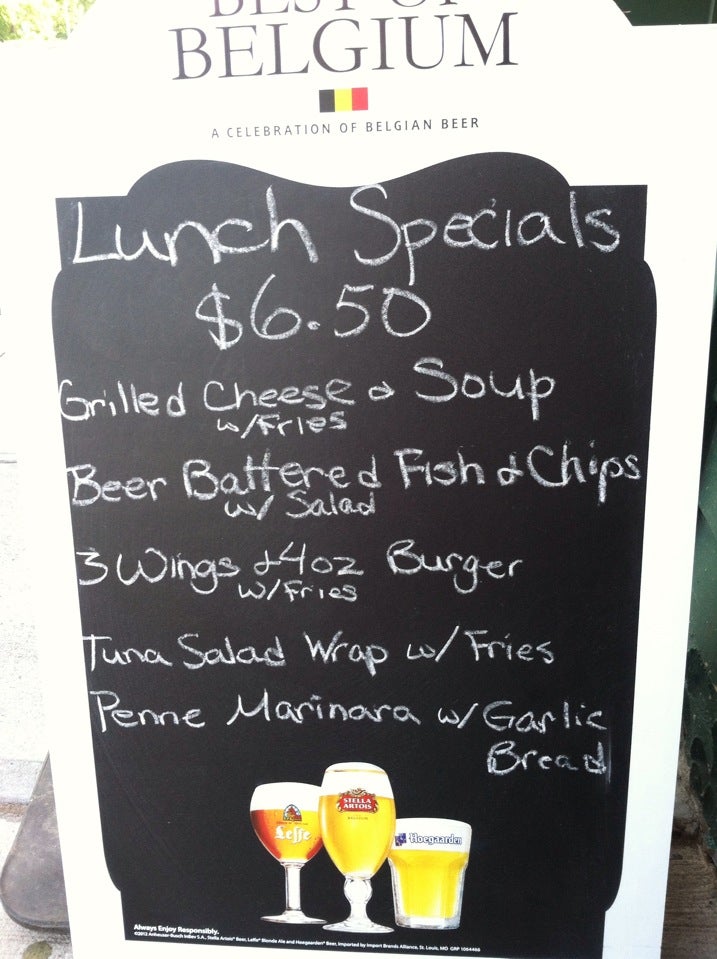 BEST OF
BELGIUM
A CELEBRATION OF BELGIAN BEER
Lunch Specials
$6.50
Grilled Cheese & Soup
w/Fries
Beer Battered Fish & Chips
w/ Salad
3 Wings & 4oz Burger
w/Fries
Tuna Salad Wrap w/ Fries
Penne Marinara w/ Garlic
Bread
Leffe
STELLA
ARTOIS
BELGIUM
Hoegaarden
Always Enjoy Responsibly.
©2012 Anheuser-Busch InBev S.A., Stella Artois® Beer, Leffe® Blonde Ale and Hoegaarden® Beer, Imported by Import Brands Alliance, St. Louis, MO GRP 1064466